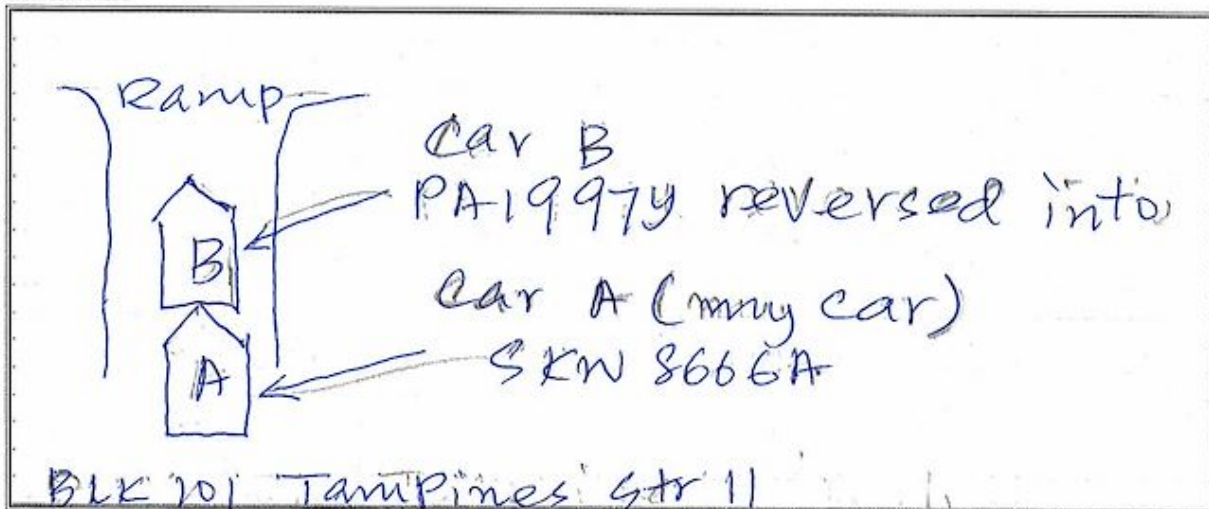 Ramp
Car B
PA1997Y reversed into
B
Car A (my car)
A
SKW 8666A
BLK 101 Tampines Str 11